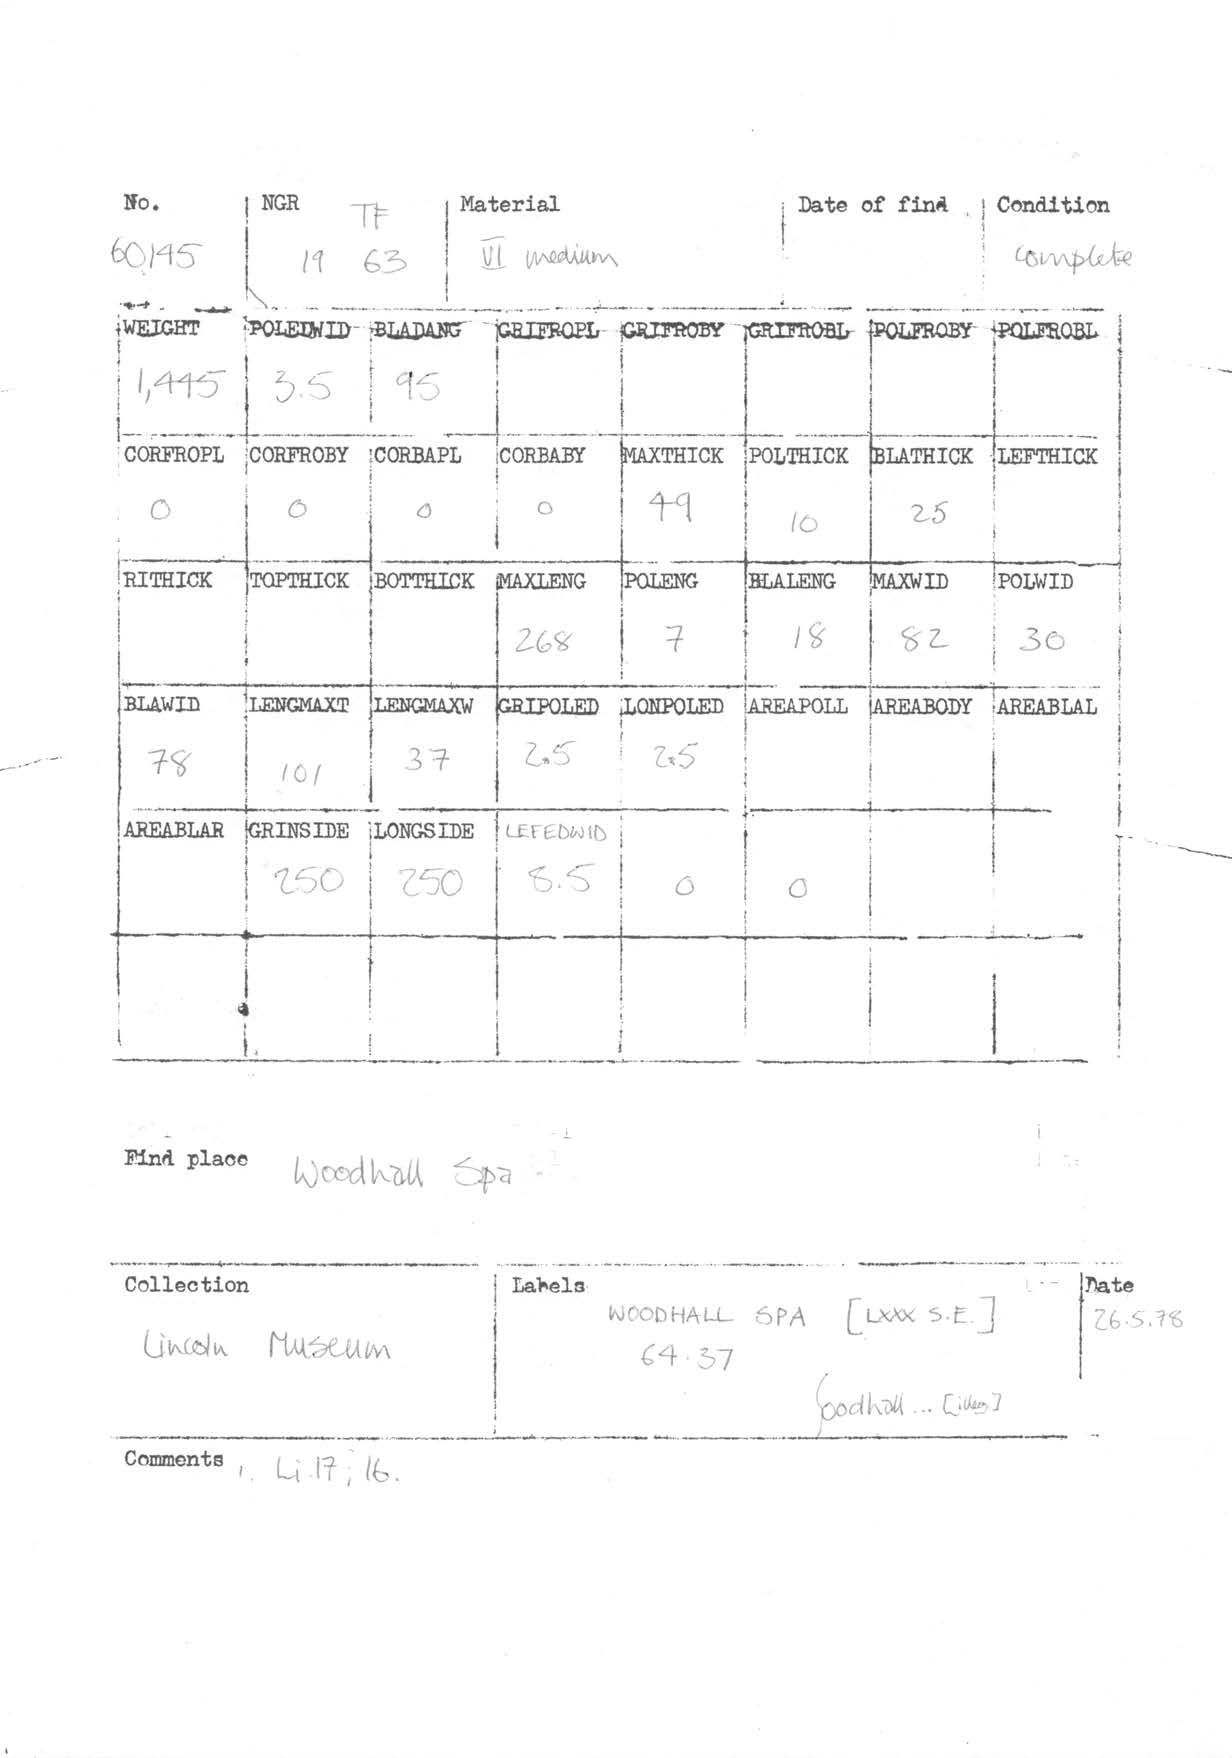 No. NGR TF Material Date of find Condition
60145 19 63 VI medium complete
WEIGHT POLEDWID BLADANG GRIFROPL GRIFROBY GRIFROBL POLFROBY POLFROBL
1,445 3.5 95
CORFROPL CORFROBY CORBAPL CORBABY MAXTHICK POLTHICK BLATHICK LEFTHICK
0 0 0 0 49 10 25
RITHICK TOPTHICK BOTTHICK MAXLENG POLENG BLALENG MAXWID POLWID
268 7 18 82 30
BLAWID LENGMAXT LENGMAXW GRIPOLED LONPOLED AREAPOLL AREABODY AREABLAL
78 101 37 2.5 2.5
AREABLAR GRINSIDE LONGSIDE LEFEDWID
250 250 8.5 0 0
Find place Woodhall Spa
Collection Labels Date
WOODHALL SPA [LXXX S.E.] 26.5.78
Lincoln Museum 64.37
oodhall ... [illeg]
Comments 1. Li.17; 16.